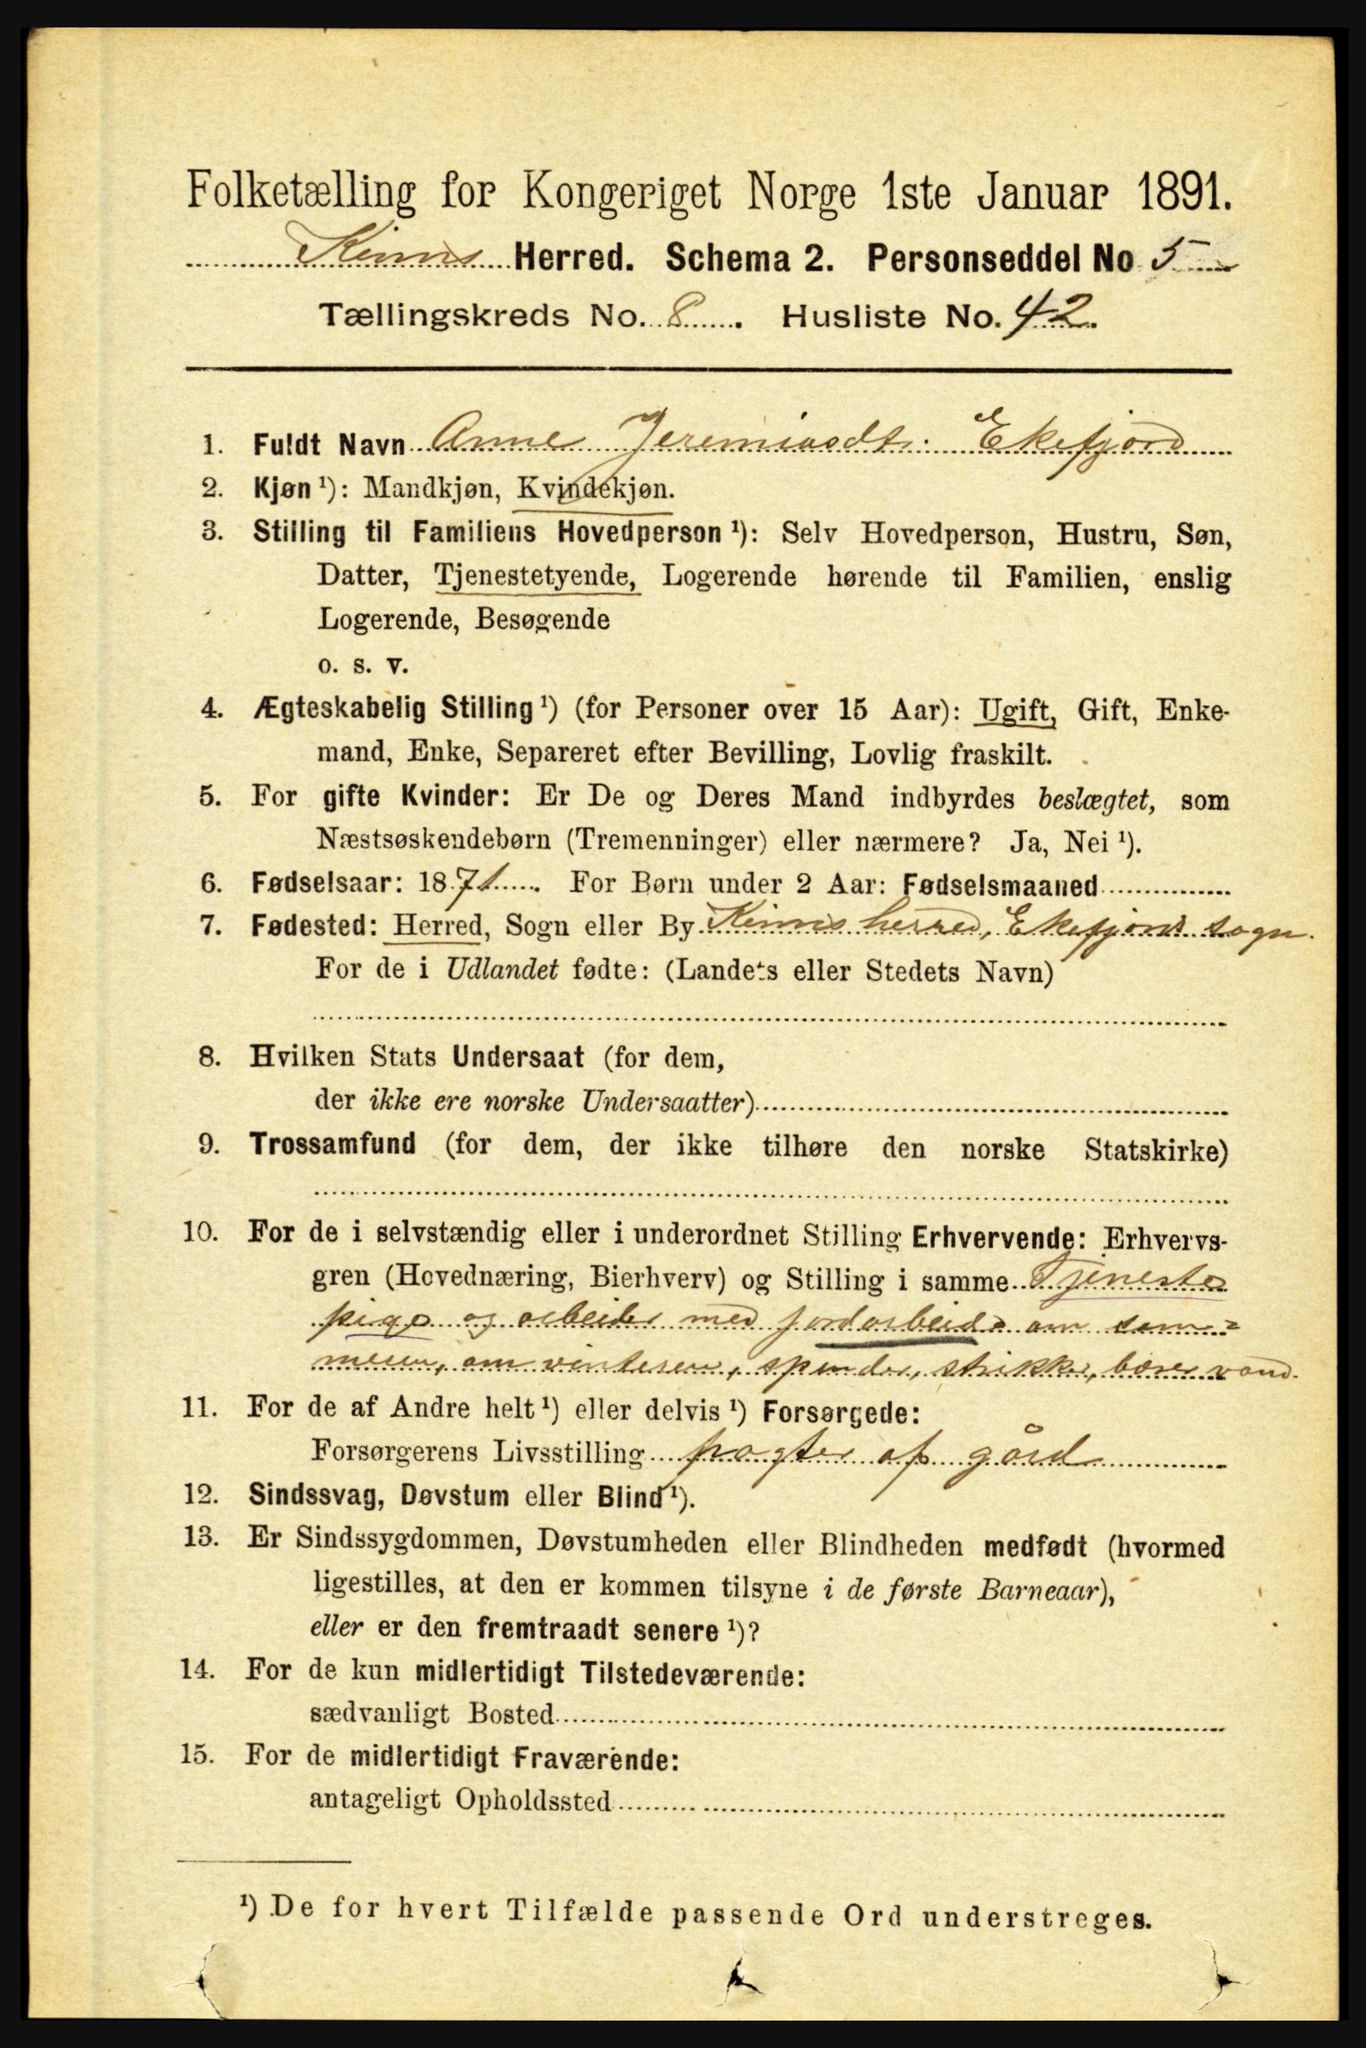 Folketælling for Kongeriget Norge 1ste Januar 1891.
Kinns Herred. Schema 2. Personseddel No 5
Tællingskreds No. 8. Husliste No. 42.
1. Fuldt Navn Anne Jeremiasdtr. Ekefjord
2. Kjøn ¹): Mandkjøn, Kvindekjøn.
3. Stilling til Familiens Hovedperson ¹): Selv Hovedperson, Hustru, Søn,
Datter, Tjenestetyende, Logerende hørende til Familien, enslig
Logerende, Besøgende
o. s. v.
4. Ægteskabelig Stilling ¹) (for Personer over 15 Aar): Ugift, Gift, Enke-
mand, Enke, Separeret efter Bevilling, Lovlig fraskilt.
5. For gifte Kvinder: Er De og Deres Mand indbyrdes beslægtet, som
Næstsøskendebørn (Tremenninger) eller nærmere? Ja, Nei ¹).
6. Fødselsaar: 1871. For Børn under 2 Aar: Fødselsmaaned
7. Fødested: Herred, Sogn eller By Kinns herred, Ekefjord sogn.
For de i Udlandet fødte: (Landets eller Stedets Navn)
8. Hvilken Stats Undersaat (for dem,
der ikke ere norske Undersaatter)
9. Trossamfund (for dem, der ikke tilhøre den norske Statskirke)
10. For de i selvstændig eller i underordnet Stilling Erhvervende: Erhvervs-
gren (Hovednæring, Bierhverv) og Stilling i samme Tjeneste
pige og arbeider med jordarbeide om som=
meren, om vinteren, spinder, strikker, bærer vand.
11. For de af Andre helt ¹) eller delvis ¹) Forsørgede:
Forsørgerens Livsstilling pagter af gård
12. Sindssvag, Døvstum eller Blind ¹).
13. Er Sindssygdommen, Døvstumheden eller Blindheden medfødt (hvormed
ligestilles, at den er kommen tilsyne i de første Barneaar),
eller er den fremtraadt senere ¹)?
14. For de kun midlertidigt Tilstedeværende:
sædvanligt Bosted
15. For de midlertidigt Fraværende:
antageligt Opholdssted
¹) De for hvert Tilfælde passende Ord understreges.